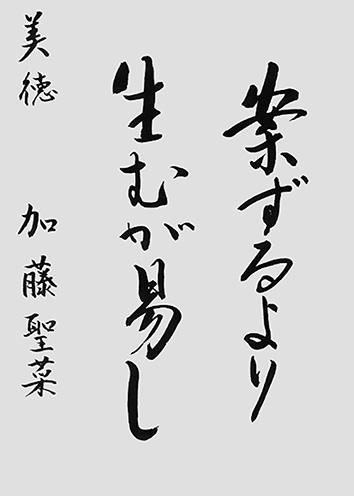 案ずるより
生むが易し
美徳 加藤聖菜